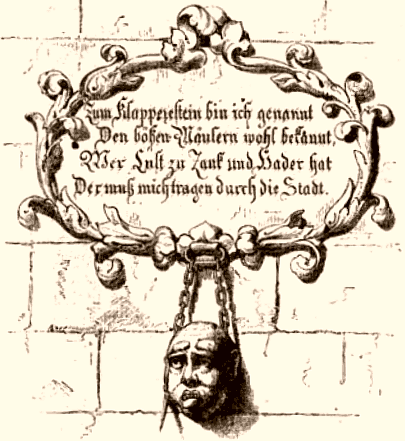 Zum Klapperstein bin ich genannt
Den bößen Mäulern wohl bekannt,
Wer Lust zu Zank und Hader hat
Der muß mich tragen durch die Stadt.